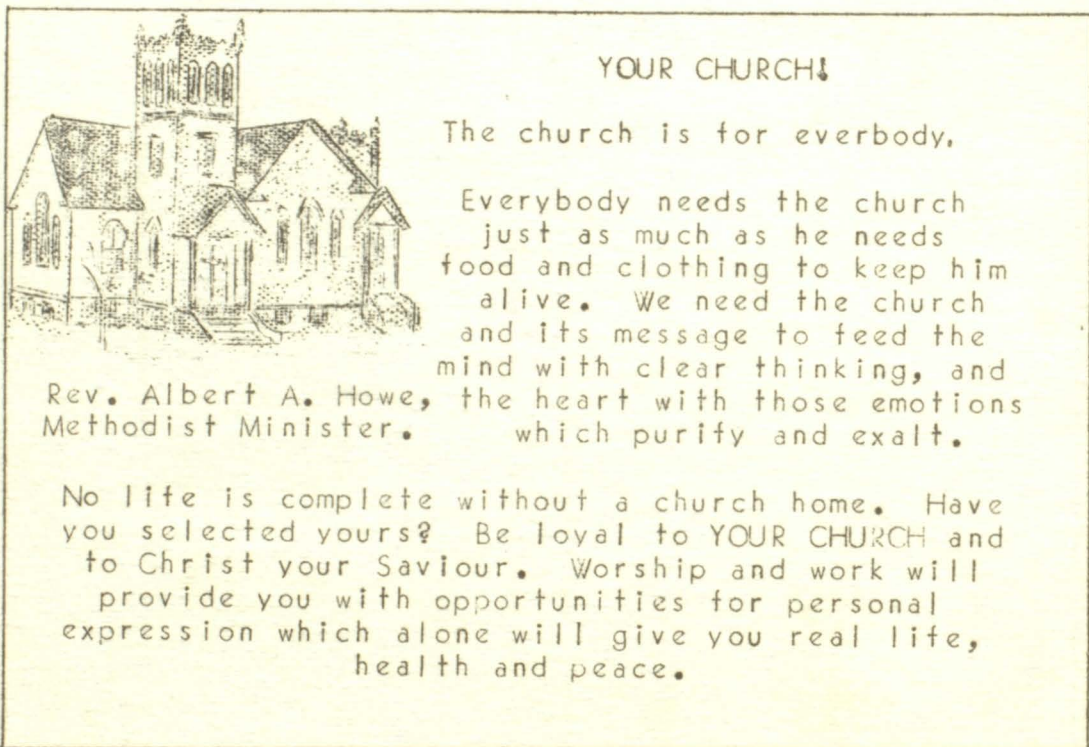 YOUR CHURCH!
The church is for everbody.
Everybody needs the church
just as much as he needs
food and clothing to keep him
alive. We need the church
and its message to feed the
mind with clear thinking, and
the heart with those emotions
which purify and exalt.
Rev. Albert A. Howe,
Methodist Minister.
No life is complete without a church home. Have
you selected yours? Be loyal to YOUR CHURCH and
to Christ your Saviour. Worship and work will
provide you with opportunities for personal
expression which alone will give you real life,
health and peace.